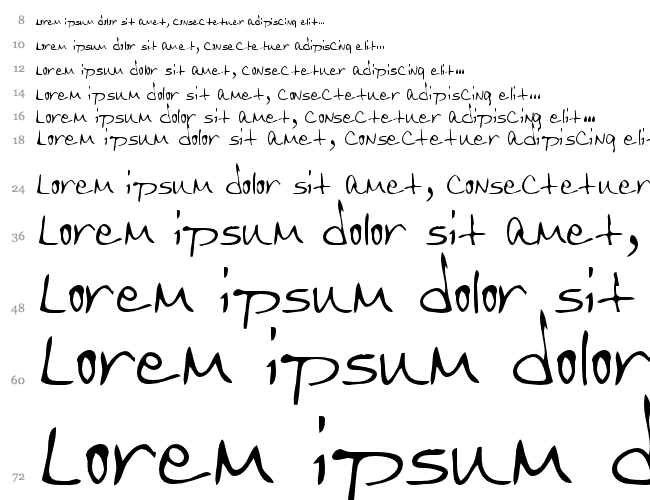 8 Lorem ipsum dolor sit amet, consectetuer adipiscing elit...
10 Lorem ipsum dolor sit amet, consectetuer adipiscing elit...
12 Lorem ipsum dolor sit amet, consectetuer adipiscing elit...
14 Lorem ipsum dolor sit amet, consectetuer adipiscing elit...
16 Lorem ipsum dolor sit amet, consectetuer adipiscing elit...
18 Lorem ipsum dolor sit amet, consectetuer adipiscing eli
24 Lorem ipsum dolor sit amet, consectetuer
36 Lorem ipsum dolor sit amet,
48 Lorem ipsum dolor sit
60 Lorem ipsum dolor
72 Lorem ipsum d